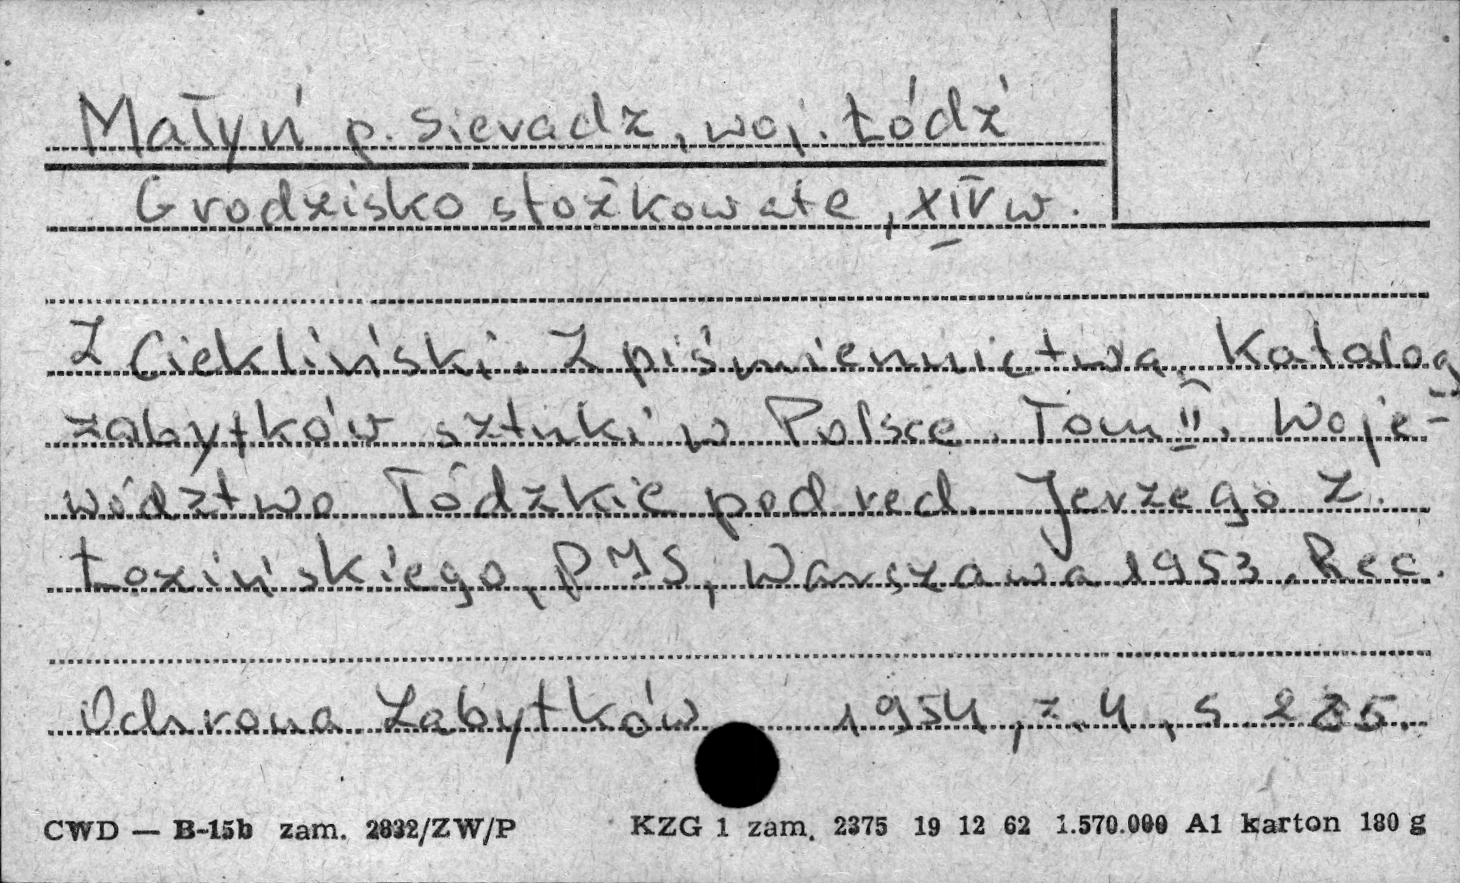 Małyń p. Sieradz, woj. Łódź
Grodzisko stożkowate, XIV w.
Z Ciekliński. Z piśmiennictwa. Katalog
zabytków sztuki w Polsce. Tom II. Woje-
wództwo łódzkie pod red. Jerzego Z.
Łozińskiego, PIS, Warszawa 1953. Rec.
Ochrona Zabytków 1954, z. 4, s 285.
CWD — B-15b zam. 2832/ZW/P
KZG 1 zam. 2375 19 12 62 1.570.000 A1 karton 180 g